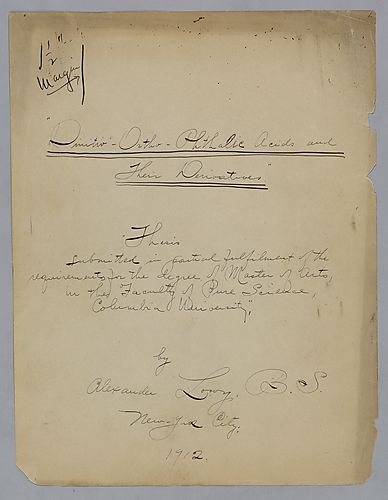 1 1/2"
Margin
"Dinitro-Ortho-Phthalic Acids and
Their Derivatives"
"Thesis
submitted in partial fulfilment of the
requirements for the degree of Master of Arts,
in the Faculty of Pure Science,
Columbia University,"
by
Alexander Lowy, B.S.
New-York City.
1912.